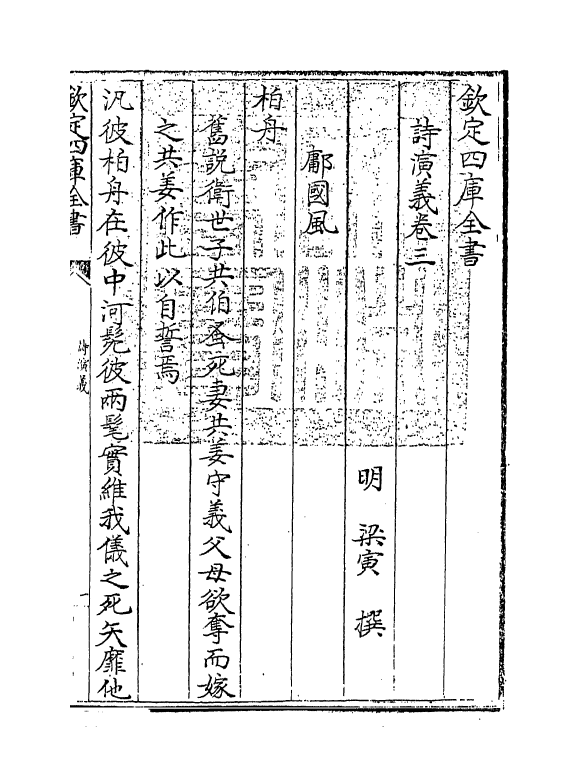 欽定四庫全書
詩演義卷三
明 梁寅 撰
鄘國風
柏舟
舊說衛世子共伯蚤死妻共姜守義父母欲奪而嫁
之共姜作此以自誓焉
汎彼柏舟在彼中河髧彼兩髦實維我儀之死矢靡他
欽定四庫全書
詩演義
一